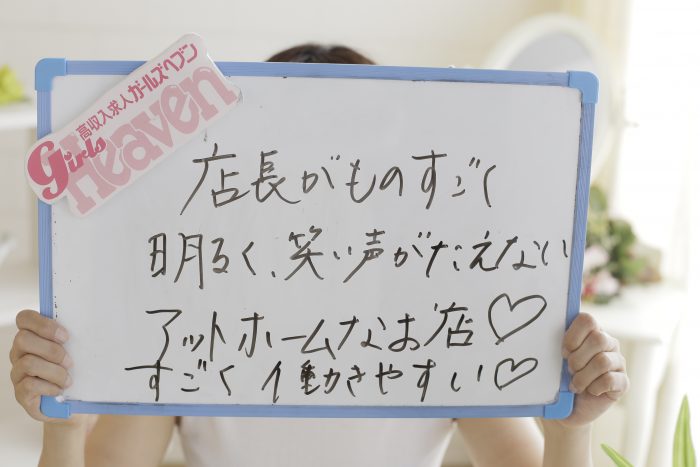 高収入求人ガールズヘブン
girls Heaven
店長がものすごく
明るく、笑い声がたえない
アットホームなお店♡
すごく働きやすい♡